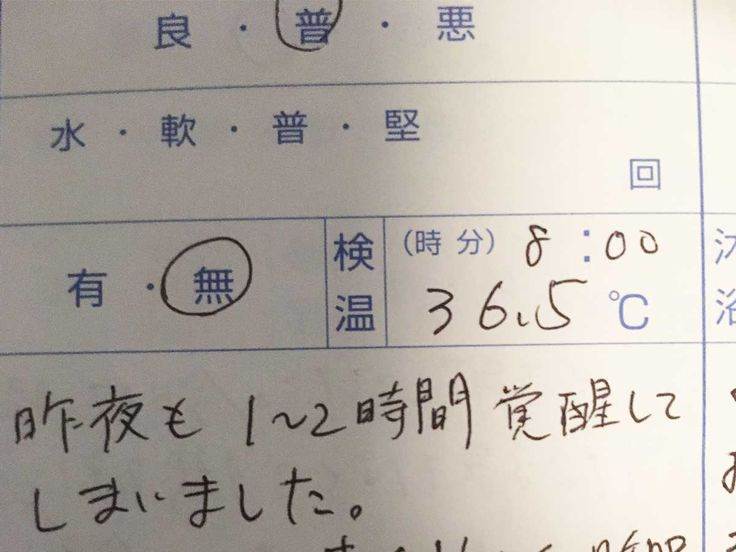 良・普・悪
水・軟・普・堅
回
有・無
検温
(時 分) 8:00
36.5℃
昨夜も 1～2時間 覚醒して
しまいました。